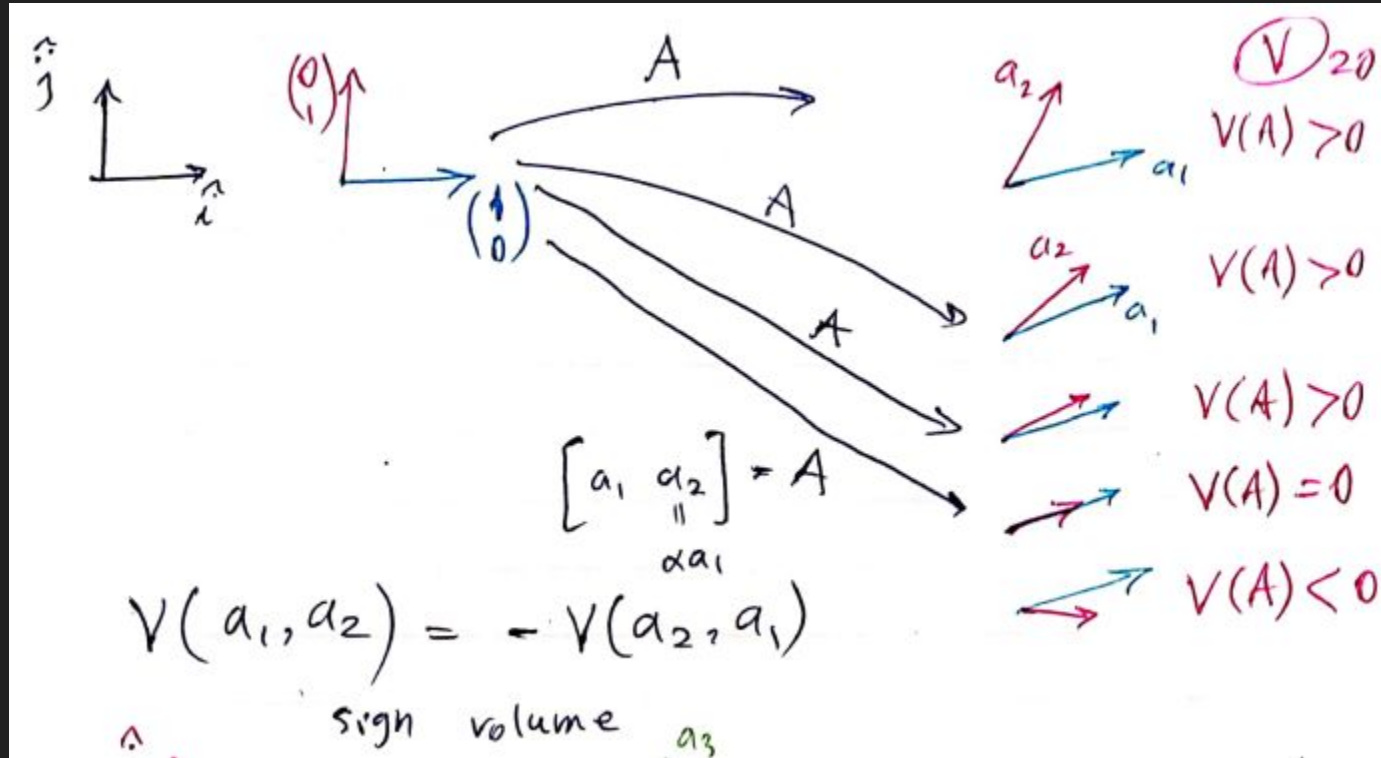 ĵ
î
(0 1)
(1 0)
A
A
A
a₂
a₁
V ≥0
V(A) >0
a₂
a₁
V(A) >0
V(A) >0
V(A) = 0
V(A) < 0
[a₁ a₂] = A
॥
αa₁
V(a₁, a₂) = - V(a₂, a₁)
sign volume
a₃